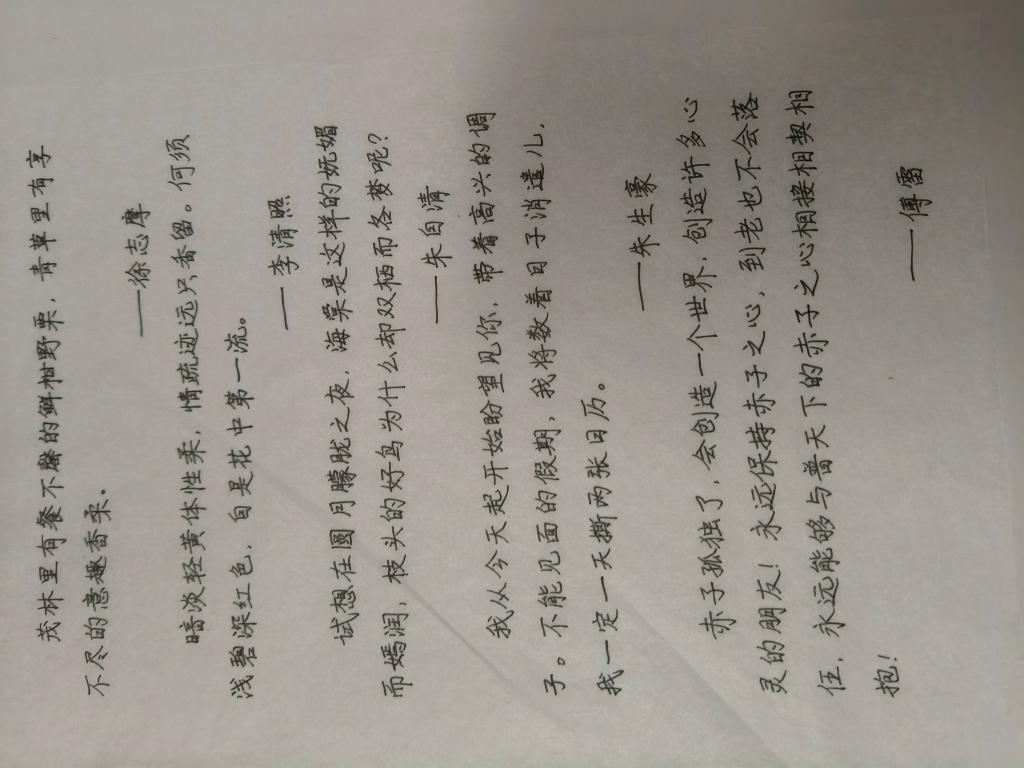 茂林里有餐不罄的鲜柑野栗，青草里有享
不尽的意趣香柔。
——徐志摩
暗淡轻黄体性柔，情疏迹远只香留。何须
浅碧深红色，自是花中第一流。
——李清照
试想在圆月朦胧之夜，海棠是这样的妩媚
而嫣润，枝头的好鸟为什么却双栖而各梦呢？
——朱自清
我从今天起开始盼望见你，带着高兴的调
子。不能见面的假期，我将数着日子消遣儿，
我一定一天撕两张日历。
——朱生豪
赤子孤独了，会创造一个世界，创造许多心
灵的朋友！永远保持赤子之心，到老也不会落
伍，永远能够与普天下的赤子之心相接相契相
抱！
——傅雷